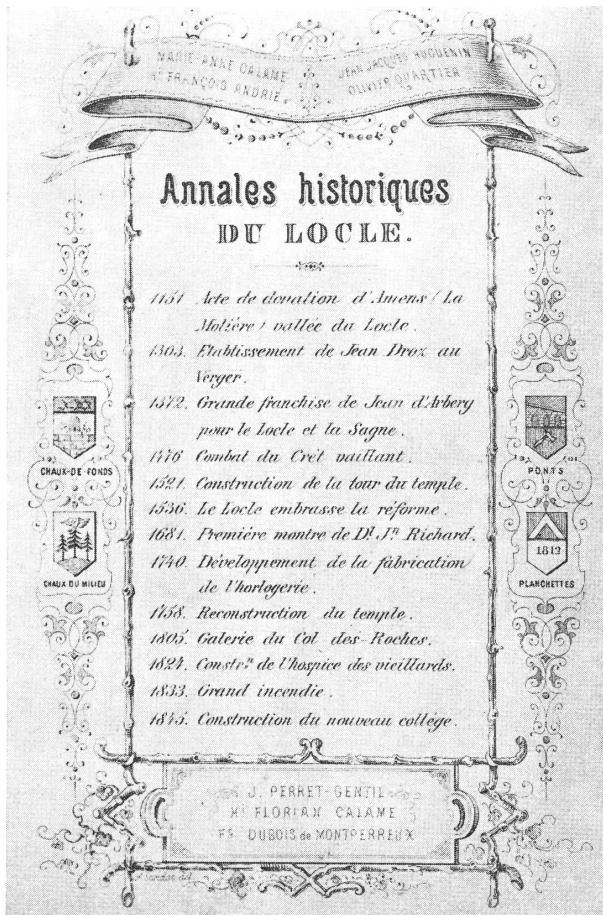 MARIE-ANNE CALAME
Hi FRANÇOIS ANDRIE
JEAN JACQUES HUGUENIN
OLIVIER QUARTIER
Annales historiques
DU LOCLE.
1151 Acte de donation d'Amens (La
Molière) vallée du Locle.
1303. Etablissement de Jean Droz au
Verger.
1372. Grande franchise de Jean d'Arberg
pour le Locle et la Sagne.
1476 Combat du Crêt vaillant.
1521. Construction de la tour du temple.
1536. Le Locle embrasse la réforme.
1681. Première montre de Dl. Jn Richard.
1740. Développement de la fabrication
de l'horlogerie.
1758. Reconstruction du temple.
1805. Galerie du Col des-Roches.
1824. Constrn. de l'hospice des vieillards.
1833. Grand incendie.
1845. Construction du nouveau collége.
CHAUX-DE-FONDS
CHAUX DU MILIEU
PONTS
1812
PLANCHETTES
J. PERRET-GENTIL
Hi FLORIAN CALAME
FS. DUBOIS de MONTPERREUX